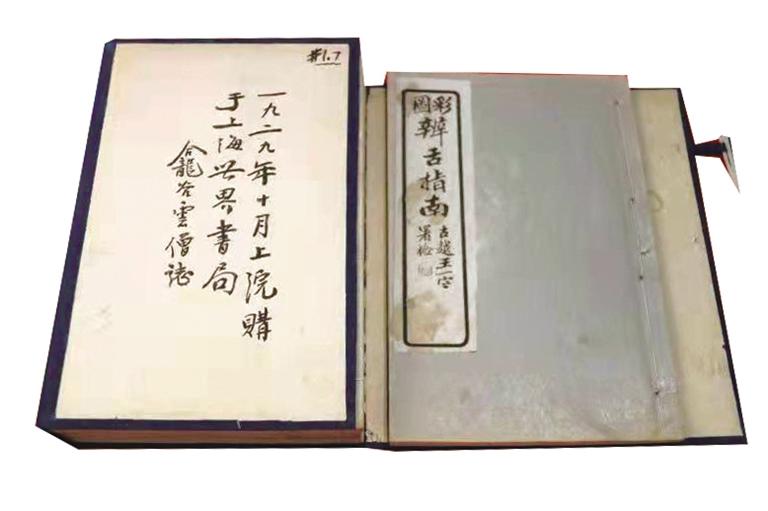 #1.7
一九二九年十月上浣購
于上海世界書局
合龍雲僧誌
彩圖
辨舌指南
古越王一
署檢